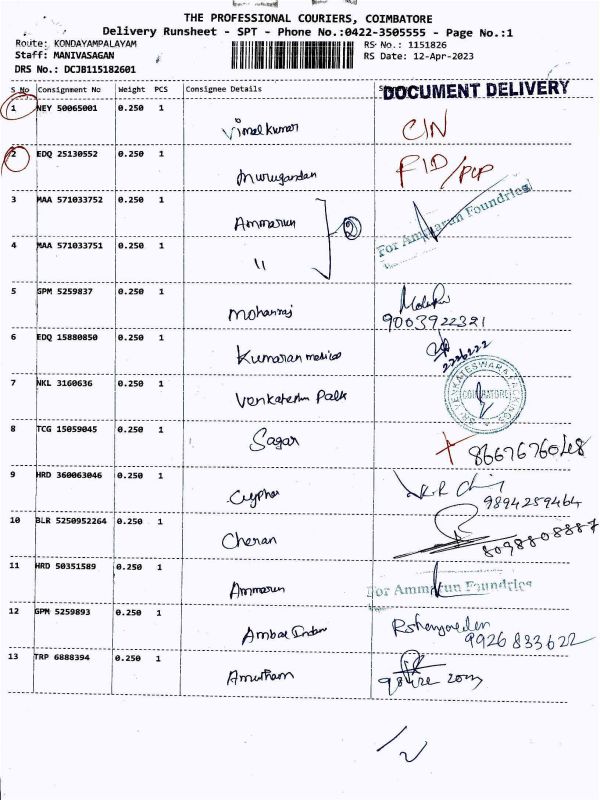 THE PROFESSIONAL COURIERS, COIMBATORE
Delivery Runsheet - SPT - Phone No.:0422-3505555 - Page No.:1
Route: KONDAYAMPALAYAM RS No.: 1151826
Staff: MANIVASAGAN RS Date: 12-Apr-2023
DRS No.: DCJB115182601
S No Consignment No Weight PCS Consignee Details
DOCUMENT DELIVERY
1 NEY 50065001 0.250 1 Vimal kumar CIN
2 EDQ 25130552 0.250 1 Murugandan FID/PCP
3 MAA 571033752 0.250 1 Ammarun 2 For Ammarun Foundries
4 MAA 571033751 0.250 1 "
5 GPM 5259837 0.250 1 Mohanraj 9003922321
6 EDQ 15880850 0.250 1 Kumaran medical 2226222
7 NKL 3160636 0.250 1 Venkatesh COIMBATORE
8 TCG 15059045 0.250 1 Sagar 8667676048
9 HRD 360063046 0.250 1 Cypher 9894259464
10 BLR 5250952264 0.250 1 Cheran 8098808887
11 HRD 50351589 0.250 1 Ammarun For Ammarun Foundries
12 GPM 5259893 0.250 1 Ambal 9926833622
13 TRP 6888394 0.250 1 Amutham